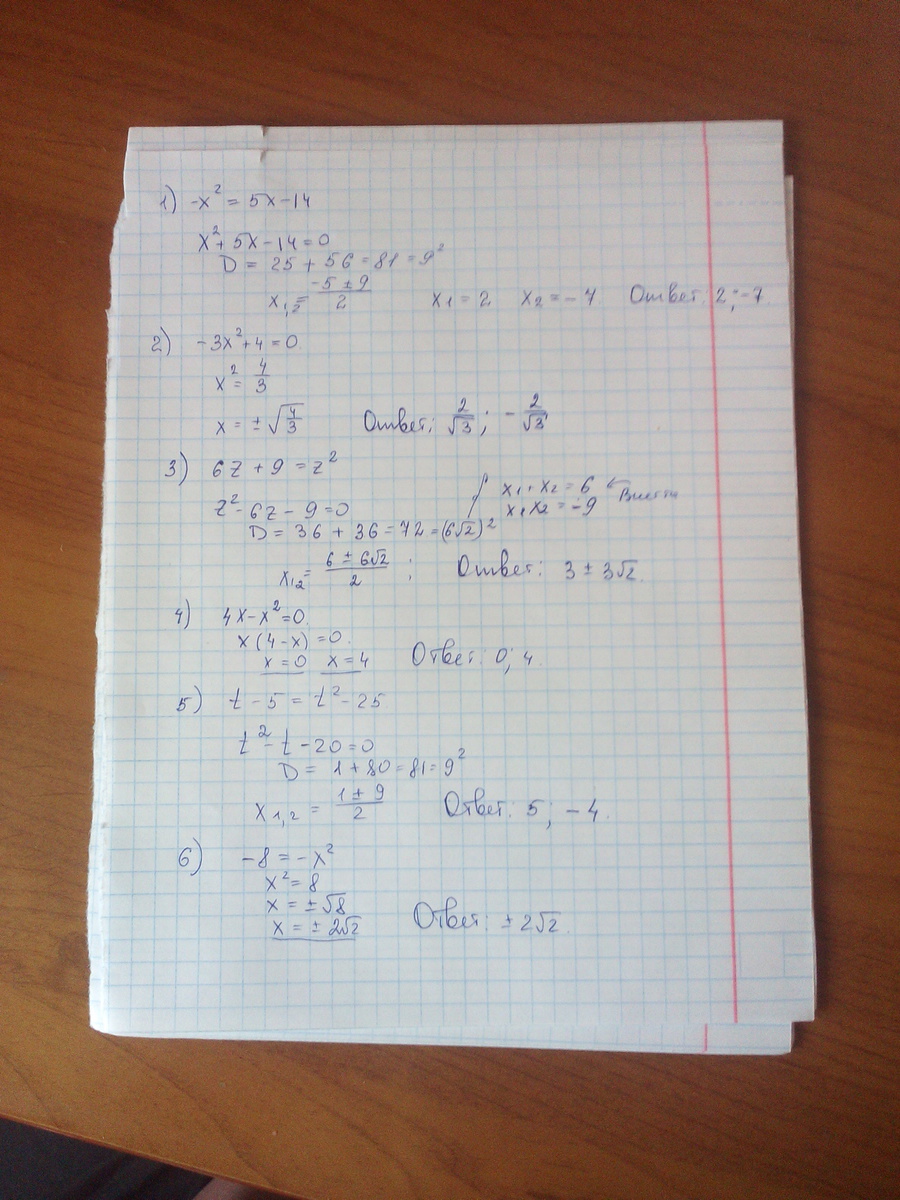 1) -x² = 5x-14
x²+ 5x-14=0
D = 25 + 56 = 81 = 9²
x₁,₂= (-5 ± 9)/2 x₁ = 2 x₂ = -7 Ответ: 2; -7
2) -3x²+4 = 0
x² = 4/3
x = ±√(4/3) Ответ: 2/√3; -2/√3
3) 6z + 9 = z²
z²- 6z - 9 = 0 x₁ + x₂ = 6
x₁x₂ = -9
D = 36 + 36 = 72 = (6√2)²
x₁,₂= (6 ± 6√2)/2; Ответ: 3 ± 3√2.
4) 4x-x²=0.
x(4-x) = 0.
x=0 x=4 Ответ: 0; 4.
5) t - 5 = t² - 25.
t²- t - 20 = 0
D = 1 + 80 = 81 = 9²
x₁,₂ = (1 ± 9)/2 Ответ: 5; -4.
6) -8 = -x²
x² = 8
x = ±√8
x = ± 2√2 Ответ: ± 2√2.